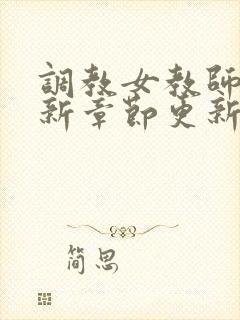 調教女教師
新章節更新
简思